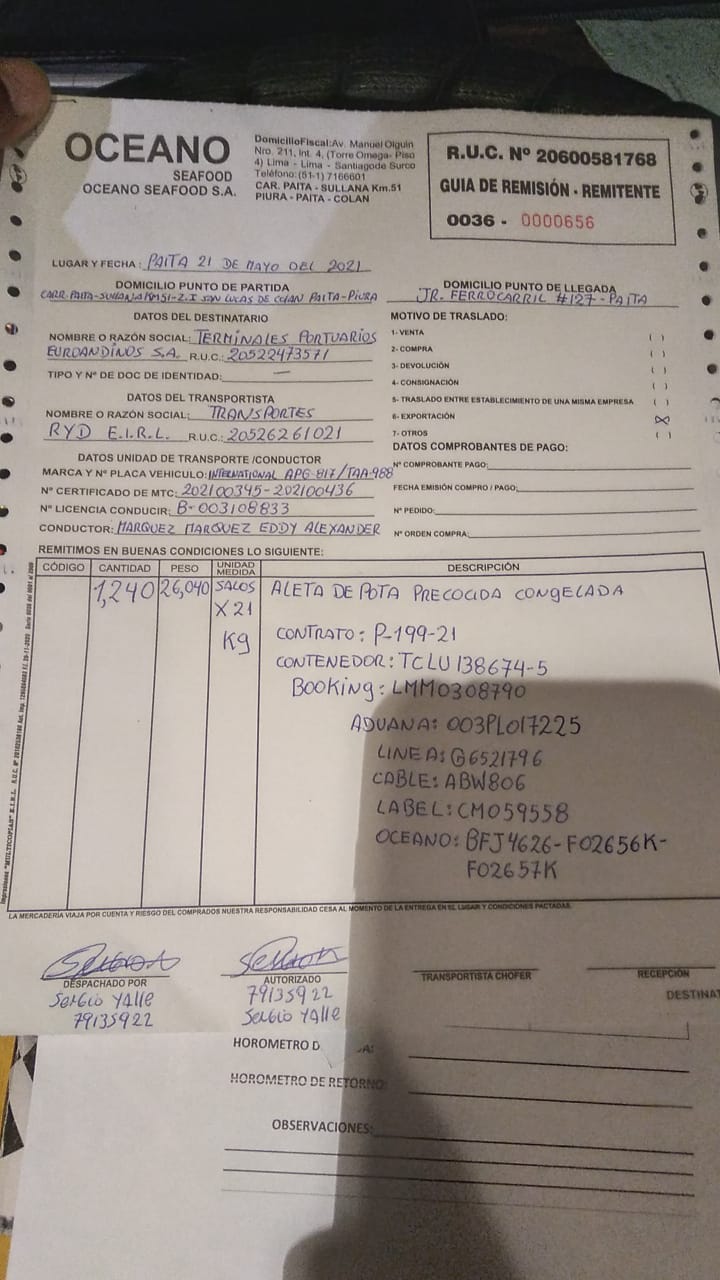 OCEANO
SEAFOOD
OCEANO SEAFOOD S.A.
DomicilioFiscal:Av. Manuel Olguin
Nro. 211, Int. 4, (Torre Omega- Piso
4) Lima - Lima - Santiagode Surco
Teléfono:(51-1) 7166601
CAR. PAITA - SULLANA Km.51
PIURA - PAITA - COLAN
R.U.C. Nº 20600581768
GUIA DE REMISIÓN - REMITENTE
0036 - 0000656
LUGAR Y FECHA: PAITA 21 DE MAYO DEL 2021
DOMICILIO PUNTO DE PARTIDA
CARR. PAITA-SULLANA KM51-Z.I SAN LUCAS DE COLAN PAITA-PIURA
DOMICILIO PUNTO DE LLEGADA
JR. FERROCARRIL #127 - PAITA
DATOS DEL DESTINATARIO
NOMBRE O RAZÓN SOCIAL: TERMINALES PORTUARIOS
EUROANDINOS S.A. R.U.C.: 20522473571
TIPO Y Nº DE DOC DE IDENTIDAD: —
DATOS DEL TRANSPORTISTA
NOMBRE O RAZÓN SOCIAL: TRANSPORTES
RYD E.I.R.L. R.U.C.: 20526261021
DATOS UNIDAD DE TRANSPORTE /CONDUCTOR
MARCA Y Nº PLACA VEHICULO: INTERNATIONAL APG-817/TAA-988
Nº CERTIFICADO DE MTC: 202100345-202100436
Nº LICENCIA CONDUCIR: B-003108833
CONDUCTOR: MARQUEZ MARQUEZ EDDY ALEXANDER
MOTIVO DE TRASLADO:
1- VENTA ( )
2- COMPRA ( )
3- DEVOLUCIÓN ( )
4- CONSIGNACIÓN ( )
5- TRASLADO ENTRE ESTABLECIMIENTO DE UNA MISMA EMPRESA ( )
6- EXPORTACIÓN (X)
7- OTROS ( )
DATOS COMPROBANTES DE PAGO:
Nº COMPROBANTE PAGO:
FECHA EMISIÓN COMPRO / PAGO:
Nº PEDIDO:
Nº ORDEN COMPRA:
REMITIMOS EN BUENAS CONDICIONES LO SIGUIENTE:
CÓDIGO CANTIDAD PESO UNIDAD MEDIDA DESCRIPCIÓN
1,240 26,040 SACOS ALETA DE POTA PRECOCIDA CONGELADA
X 21
Kg
CONTRATO: P-199-21
CONTENEDOR: TCLU 138674-5
BOOKING: LMM0308790
ADUANA: 003PL017225
LINEA: G6521796
CABLE: ABW806
LABEL: CM059558
OCEANO: BFJ4626-F02656K-
F02657K
LA MERCADERÍA VIAJA POR CUENTA Y RIESGO DEL COMPRADOS NUESTRA RESPONSABILIDAD CESA AL MOMENTO DE LA ENTREGA EN EL LUGAR Y CONDICIONES PACTADAS.
DESPACHADO POR
Sergio Yalle
79135922
AUTORIZADO
79135922
Sergio Yalle
TRANSPORTISTA CHOFER
RECEPCIÓN
DESTINAT
HOROMETRO D
HOROMETRO DE RETORNO:
OBSERVACIONES: